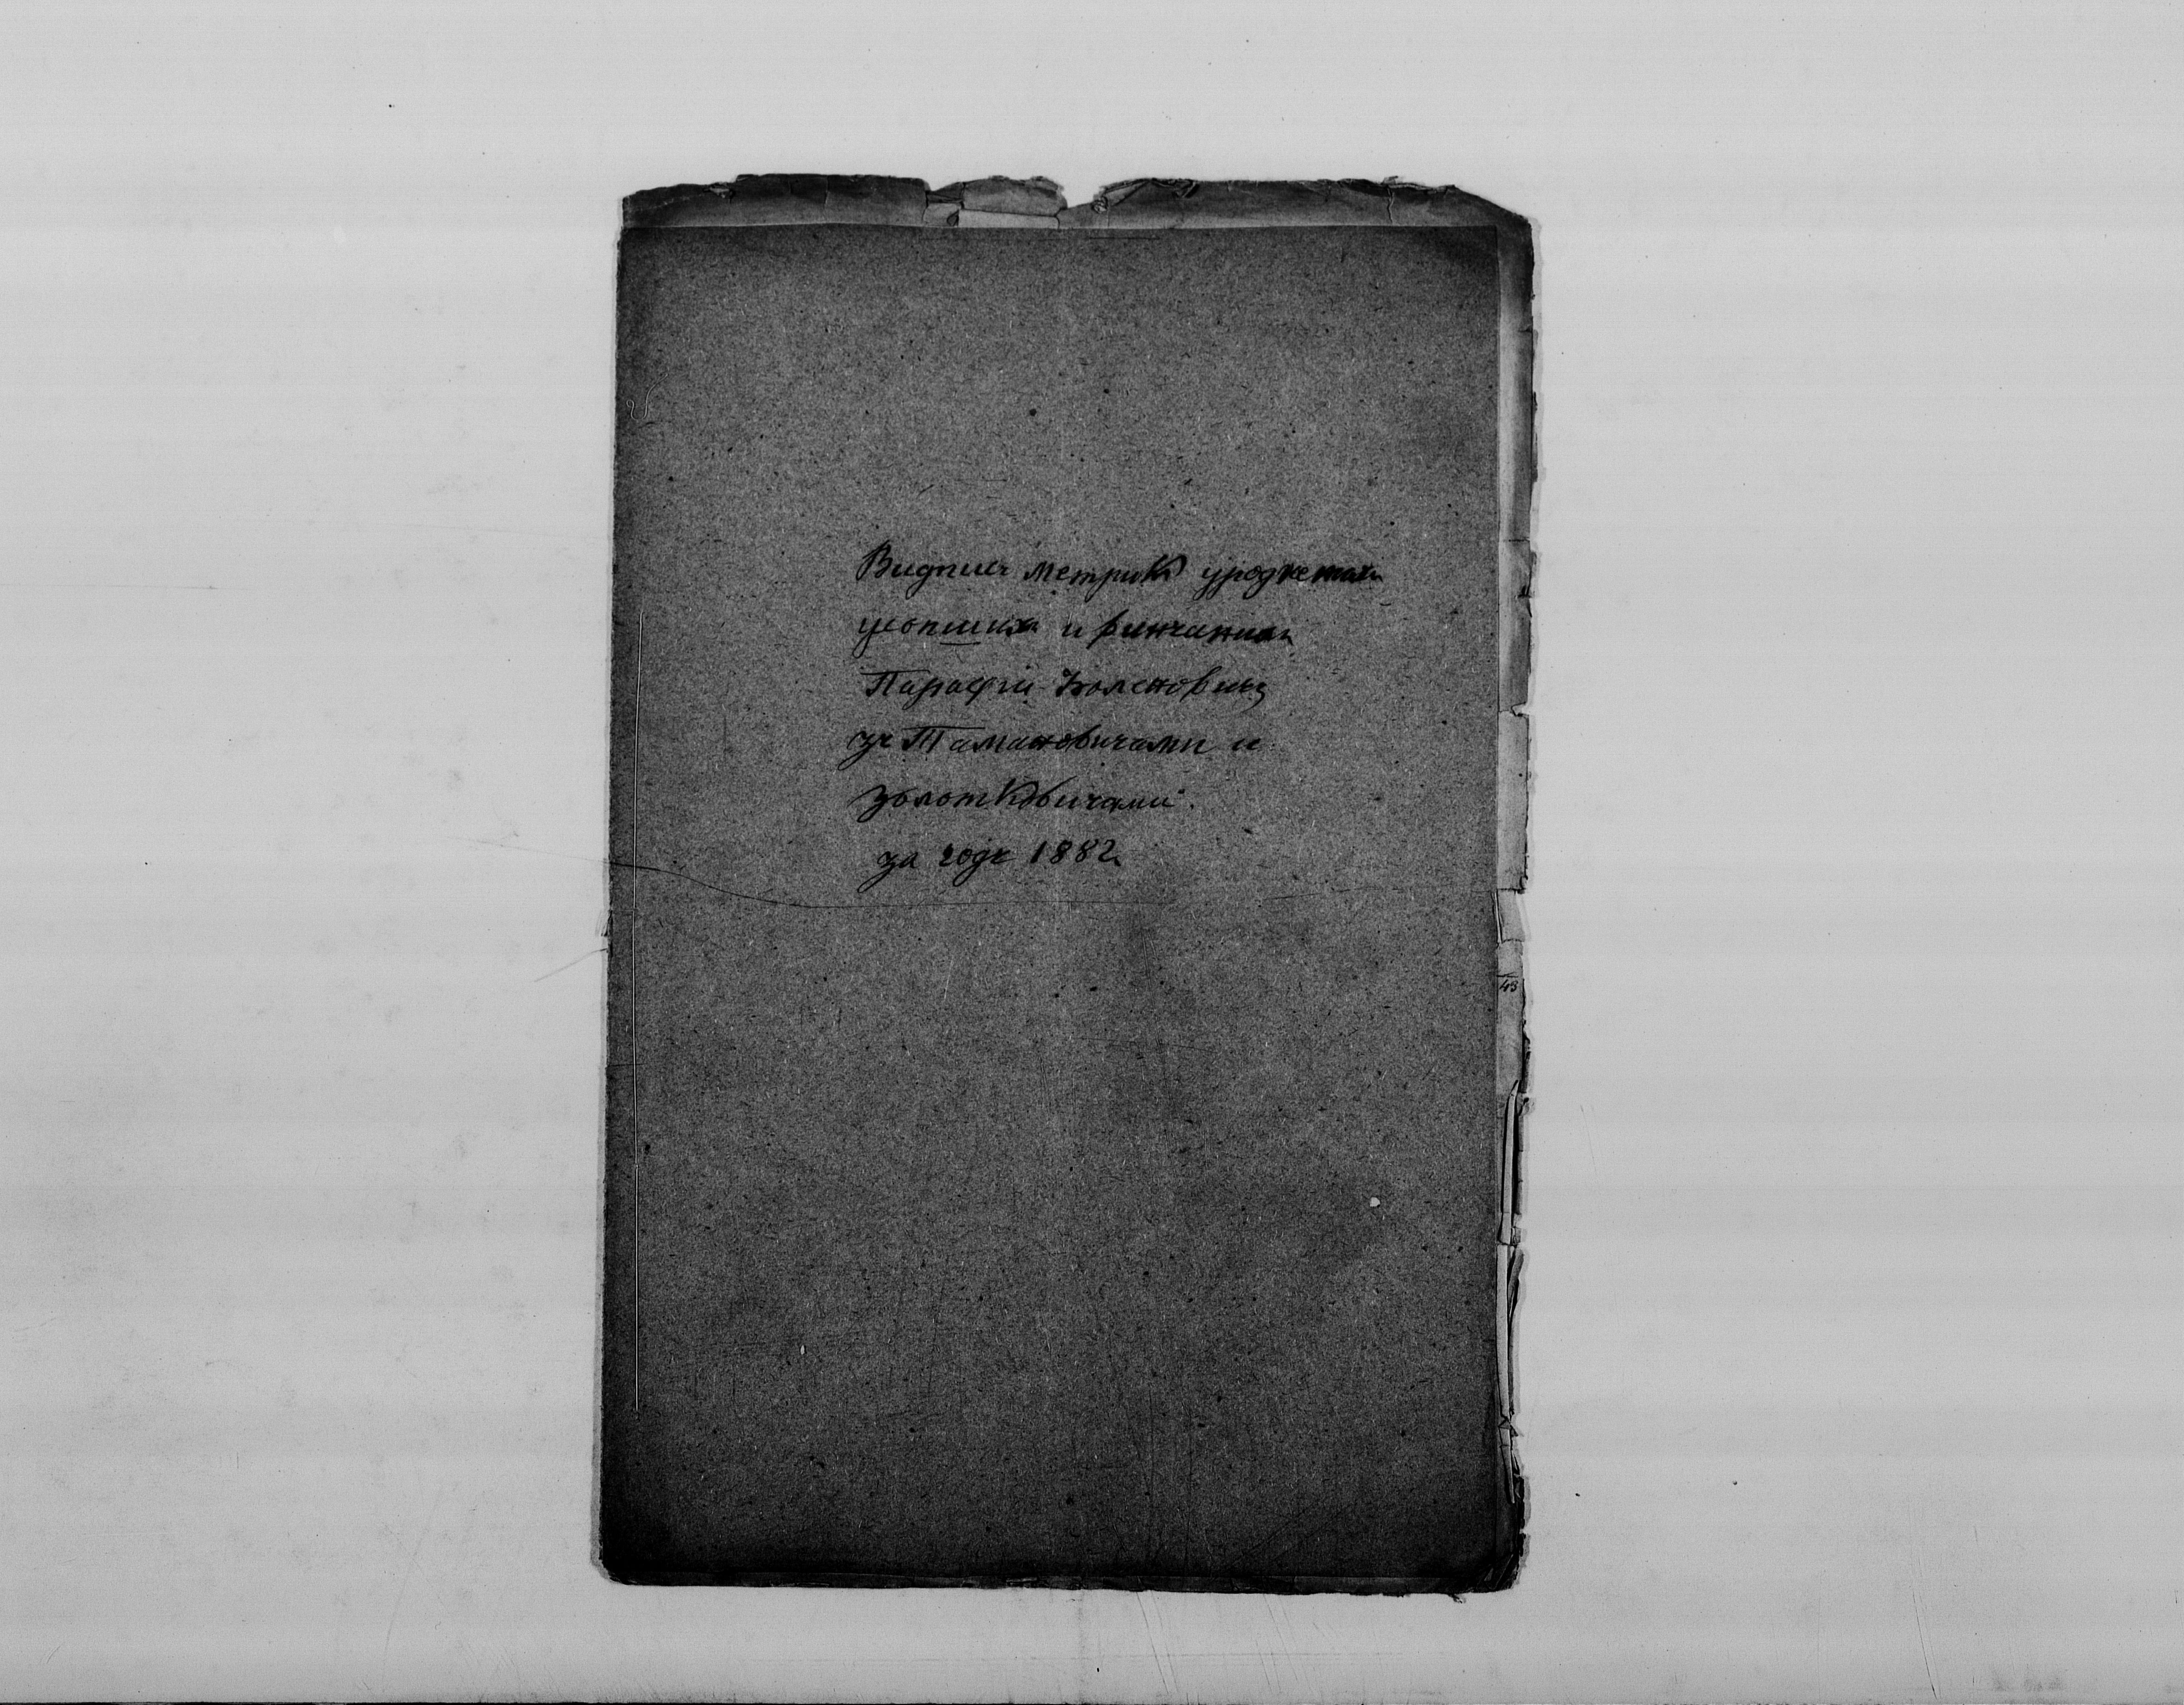 Видпись метрикъ уродженыхъ
усопшихъ и винчаныхъ
Парафіи Боленовичъ
зъ Тамановичами и
Золотковичами.
за годъ 1882
43